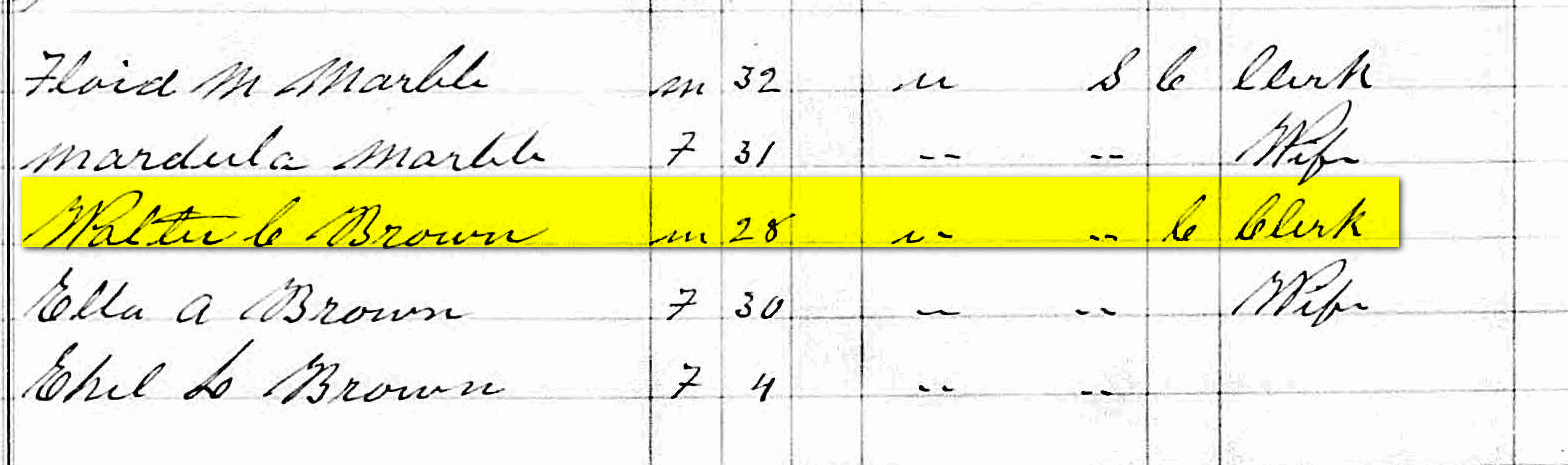 Floid M Marble m 32 " S C Clerk
Mardula Marble F 31 -- -- Wife
Walter C Brown m 28 -- -- C Clerk
Ella A Brown F 30 -- -- Wife
Ethel L Brown F 4 -- --